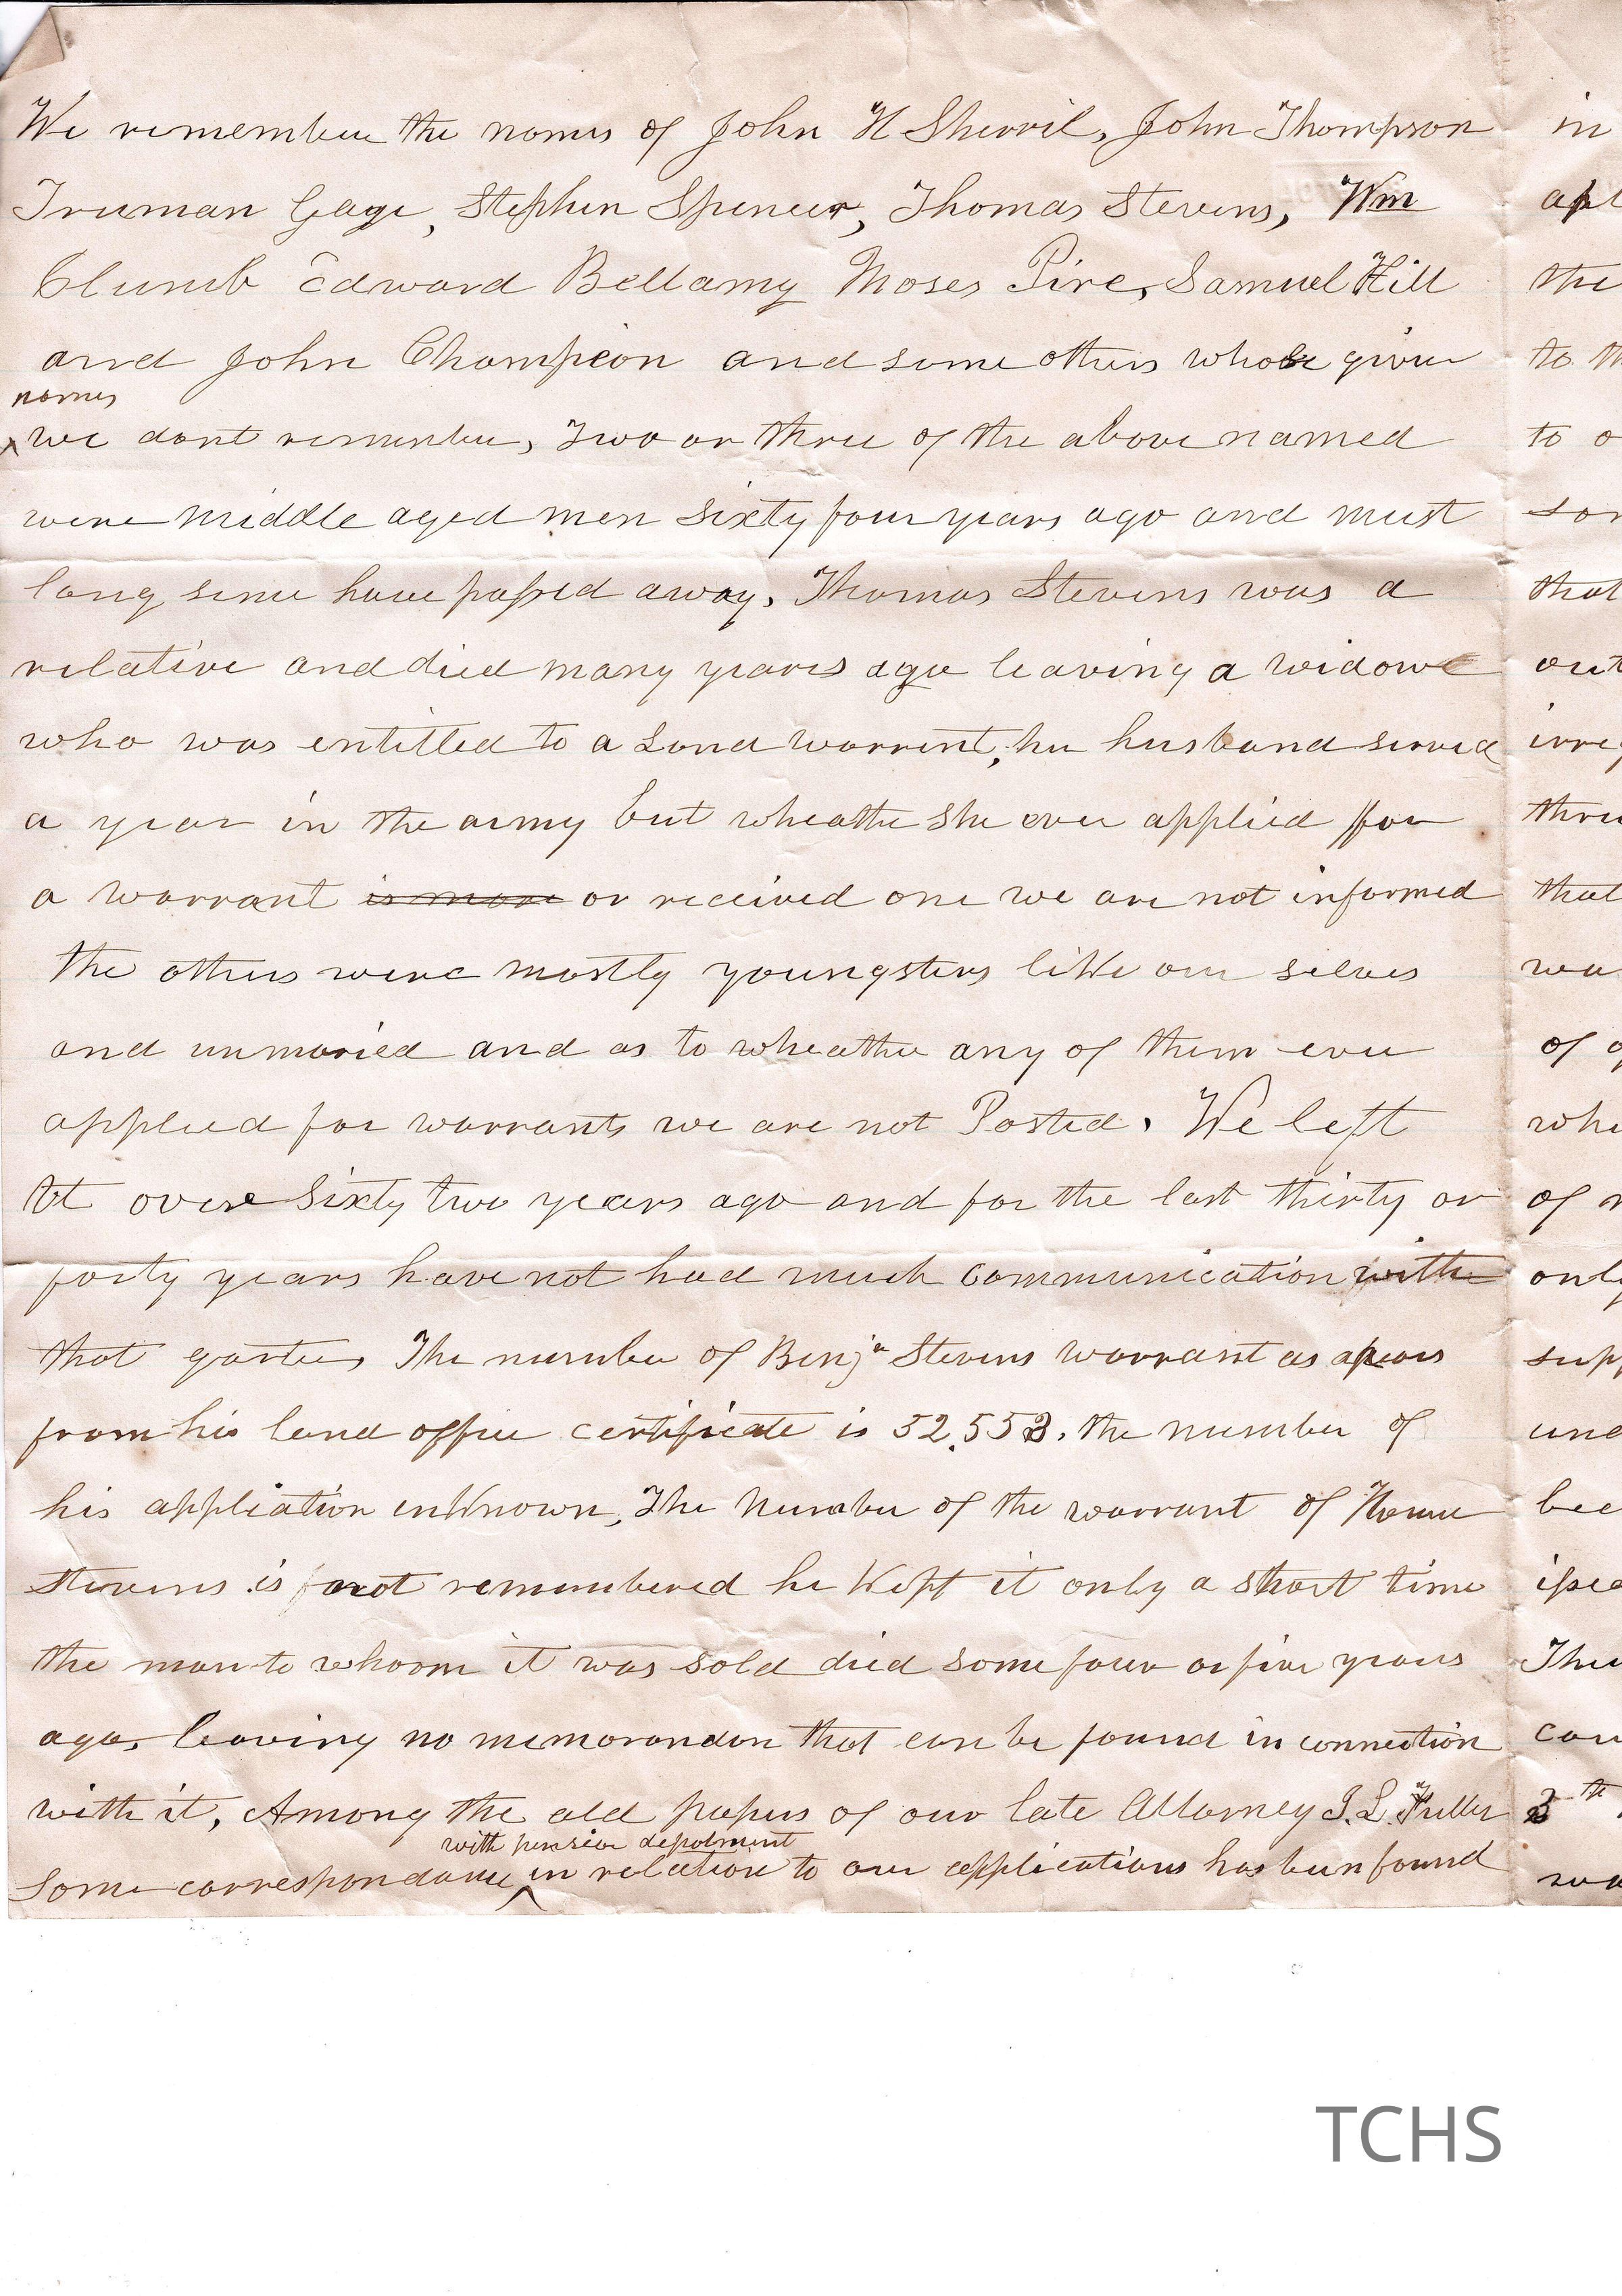 We remember the names of John H Sherril, John Thompson
Truman Gage, Stephen Spencer, Thomas Stevens, Wm
Clumb Edward Bellamy Moses Pire, Samuel Hill
and John Champion and some others whose given
names
^ we dont remember, Two or three of the above named
were middle aged men sixty four years ago and must
long since have passed away. Thomas Stevens was a
relative and died many years ago leaving a widow
who was entitled to a Land warrent, her husband served
a year in the army but wheather she ever applied for
a warrant is more or received one we are not informed
the others were mostly youngsters like our selves
and unmaried and as to wheather any of them ever
applied for warrants we are not Posted. We left
Vt over sixty two years ago and for the last thirty or
forty years have not had much communication with
that quarter, The number of Benj a Stevens warrant as apears
from his land office certificate is 52.553. the number of
his appliation unknown, The Number of the warrant of
Stevens is not remembered he Kept it only a short time
the man to whoom it was sold died some four or five years
ago, leaving no memorandon that can be found in connection
with it, Among the old papers of our late Attorney J. L. Fuller
with pension depatment
Some correspondance ^ in relation to our applications has been found
in
apl
the
to th
to o
son
that
out
irreg
thre
that
wa
of
whe
of
only
supp
und
bee
isse
The
cou
3th
wa
TCHS